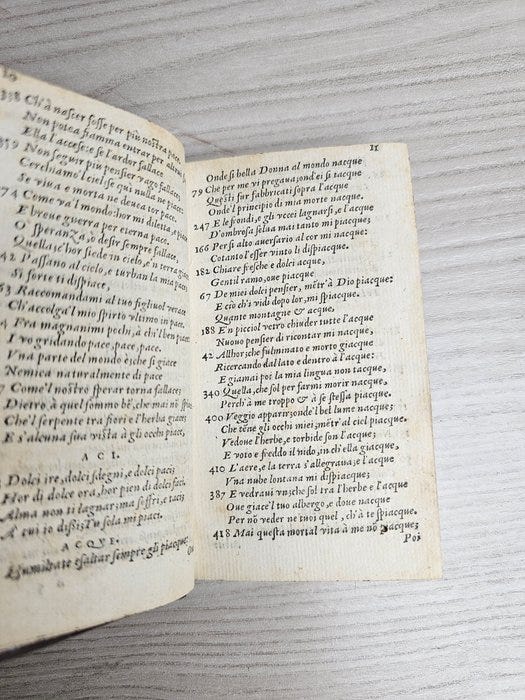 10
338 Ch'à nascer fosse per più nostra pace.
Non potea fiamma entrar per altrui
Ella l'accese: e se l'ardor fallace
359 Non seguir più pensier vago fallace:
Cerchiamo l'ciel, se qui nulla ne piace:
Se viva e morta ne devea tor pace.
74 Come va'l mondo: hor mi diletta, e piace
E breve guerra per eterna pace.
O speranza, o desir sempre fallace,
Quella, c'hor siede in cielo, e'n terra giace
42 Passano al cielo, e turban la mia pace
Si forte ti dispiace,
53 Raccomandami al tuo figliuol verace
Ch'accolga'l mio spirto ultimo in pace.
4 Fra magnanimi pochi, à chi'l ben piace:
I vo gridando pace, pace, pace.
Vna parte del mondo è, che si giace
Nemica naturalmente di pace
7 Come'l nostro sperar torna fallace;
Dietro à quel sommo bē, che mai nō spiace
Che'l serpente tra fiori e l'herba giace;
E s'alcuna sua vista à gli occhi piace,
ACI.
Dolci ire, dolci sdegni, e dolci paci;
Hor di dolce ora, hor pien di dolci faci.
Alma non ti lagnar; ma soffri, e taci;
A cui io dissi; Tu sola mi piaci.
ACQVE.
L'humiltate essaltar sempre gli piacque:
On
11
Onde si bella Donna al mondo nacque
79 Che per me vi pregaua; ond'ei si tacque
Questi fur fabbricati sopra l'acque
Onde'l principio di mia morte nacque.
247 E le frondi, e gli vccei lagnarsi, e l'acque
D'ombrosa selua mai tanto mi piacque;
166 Per si alto auersario al cor mi nacque:
Cotanto l'esser vinto li dispiacque.
182 Chiare fresche e dolci acque,
Gentil ramo, oue piacque
67 De miei dolci pensier, mētr'à Dio piacque:
E ciò ch'i vidi dopo lor, mi spiacque.
Quante montagne & acque,
188 E'n picciol vetro chiuder tutte l'acque
Nuouo pensier di ricontar mi nacque,
42 Allhor, che fulminato e morto giacque
Ricercando dal lato e dentro à l'acque:
E giamai poi la mia lingua non tacque,
340 Quella, che sol per farmi morir nacque,
Perch'à me troppo & à se stessa piacque.
400 Veggio apparir; onde'l bel lume nacque;
Che tēne gli occhi miei; mētr'al ciel piacque.
Vedoue l'herbe, e torbide son l'acque;
E voto e freddo il nido, in ch'ella giacque,
410 L'aere, e la terra s'allegraua; e l'acque
Vna nube lontana mi dispiacque;
387 E vedraui vn; che sol tra l'herbe e l'acque
Oue giace'l tuo albergo, e doue nacque
Per nō veder ne tuoi quel, ch'à te spiacque.
418 Mai questa mortal vita à me nō piacque;
Poi